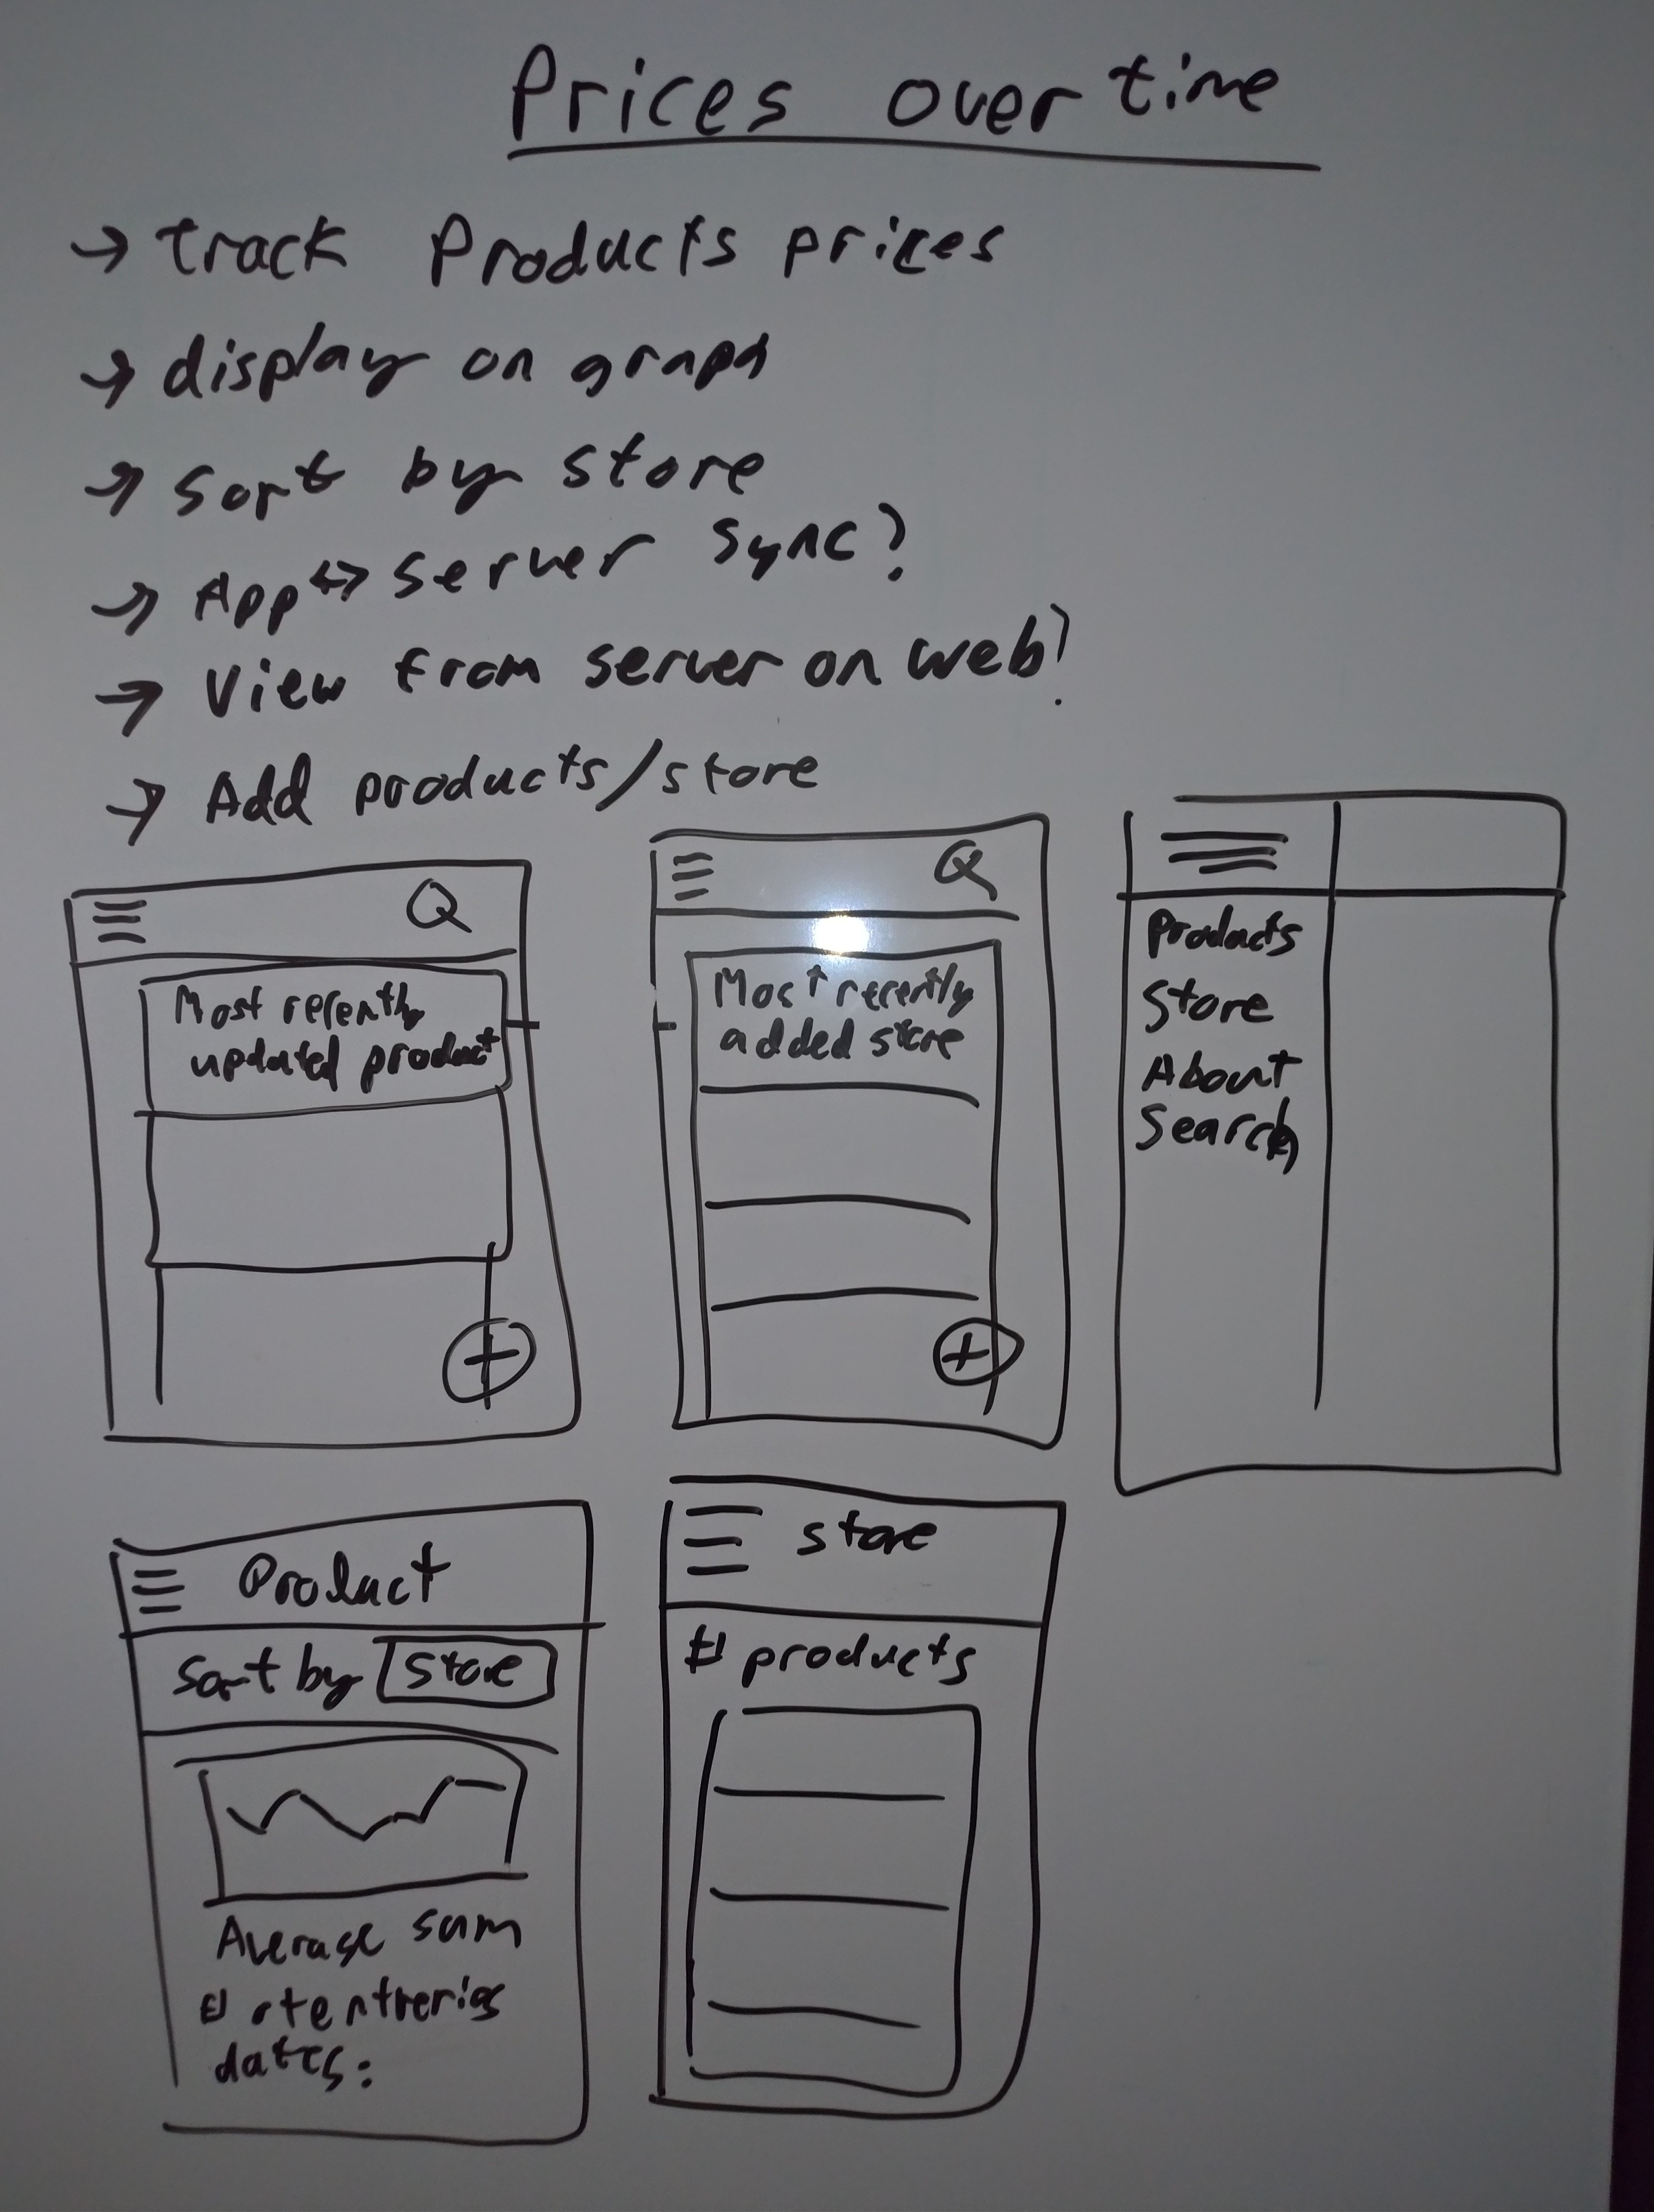 Prices over time
→ track Products prices
→ display on graph
→ Sort by store
→ App ↔ server sync?
→ View from server on web?
→ Add products/store
Most recently
updated product
Most recently
added store
Products
Store
About
Search
Product
Sort by store
Average sum
dates:
store
# products